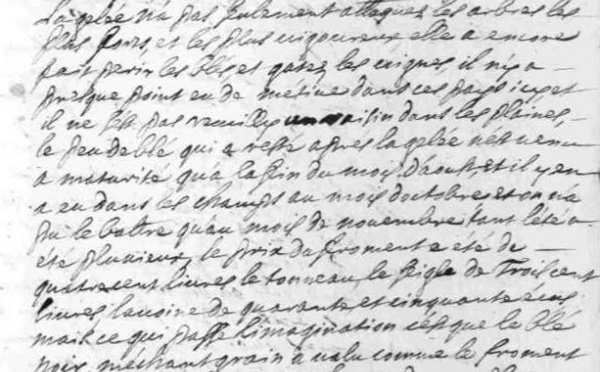 La gelée n'a pas seulement attaquez les arbres les
plus forts, et les plus vigoureux elle a encore
fait perir les bleds, et gatez les vignes, il n'y a
presque point eu de metive dans ces pays icy et
il ne s'est pas recueilly un raisin dans les plaines,
le peu de blé qui a resté apres la gelée n'est venu
a maturité qu'a la fin du mois d'aoust, et il y en
a eu dans les champs au mois d'octobre et on n'a
pu le battre qu'au mois de novembre tant l'été a
été pluvieux, le prix du froment a été de
quatrecent livres le tonneau, le seigle de Trois cent
livres l'avoine de quarante et cinquante écus
mais ce qui passe l'imagination c'est que le blé
noir, mechant grain a valu comme le froment